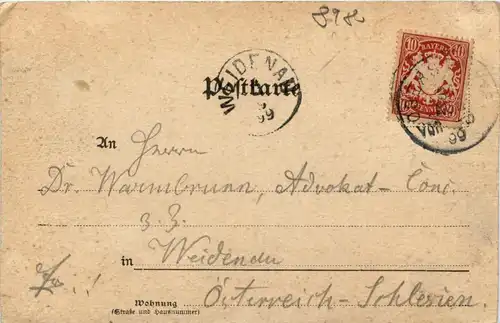 898
10 BAYERN 10
WEIDENAU
99
Postkarte
VORM
99
An Herrn
Dr. Warmbrunn, Advokat-Conc.
z. Z.
in Weidenau
Österreich-Schlesien.
Wohnung
(Straße und Hausnummer)